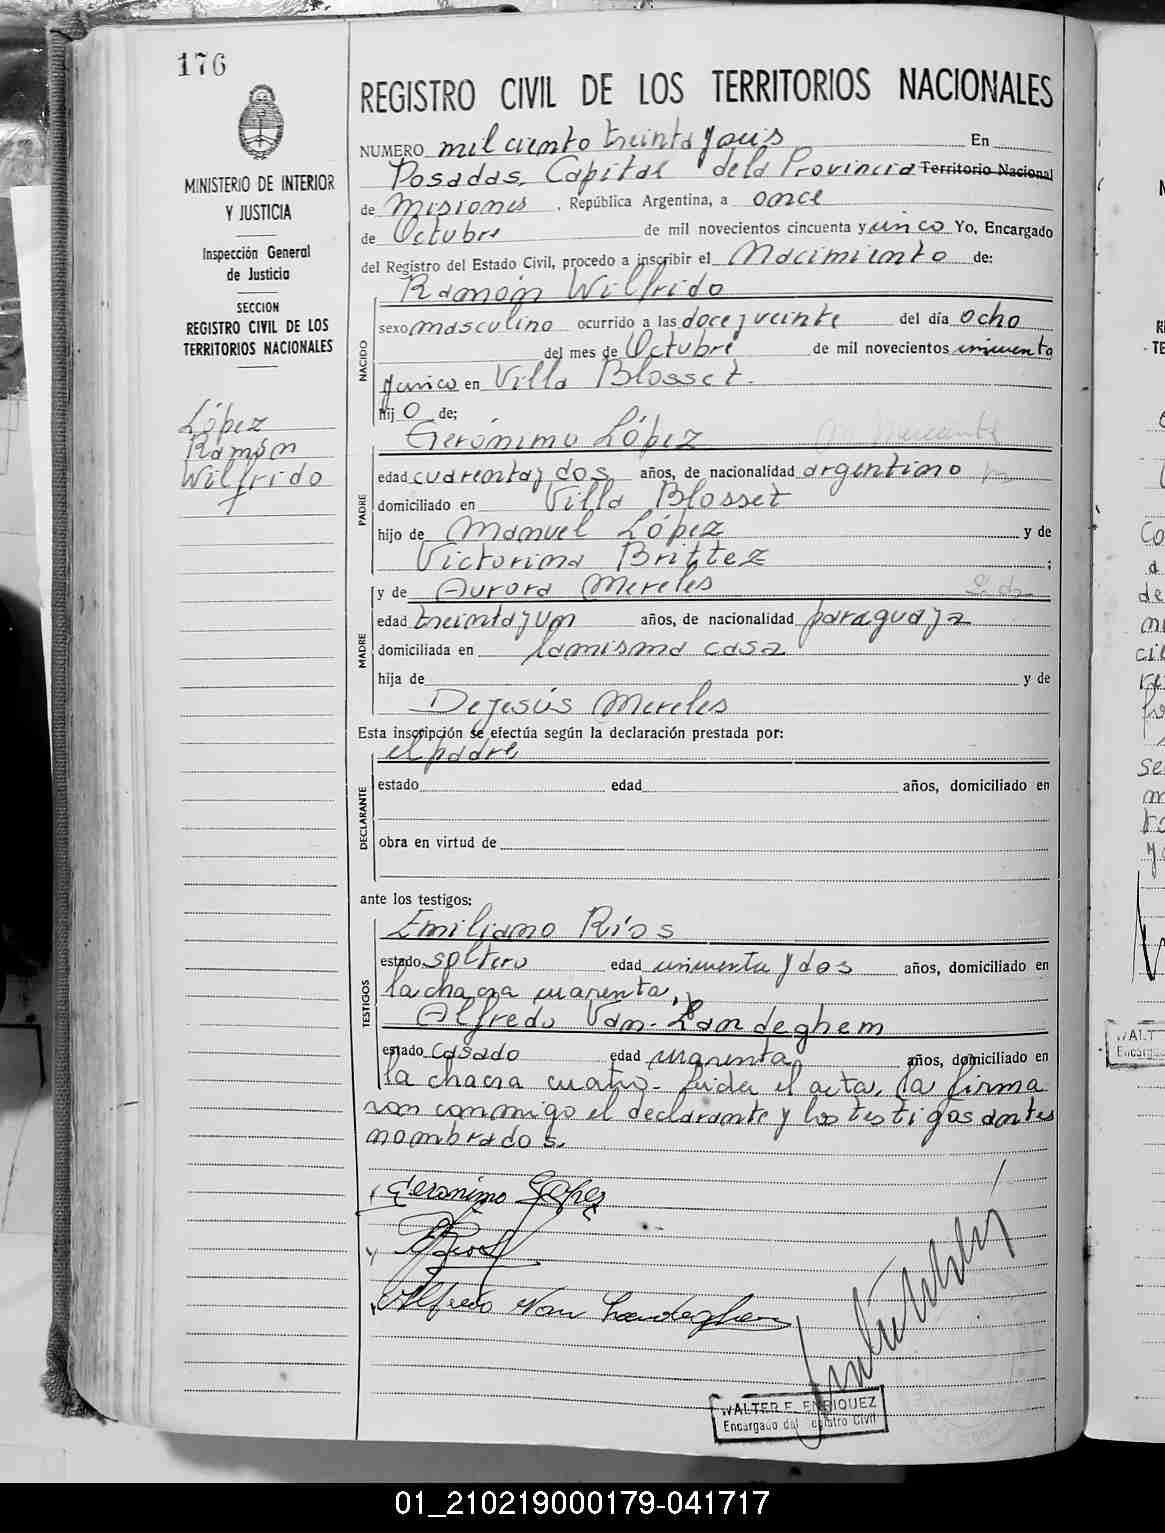 176
MINISTERIO DE INTERIOR
Y JUSTICIA
Inspección General
de Justicia
SECCION
REGISTRO CIVIL DE LOS
TERRITORIOS NACIONALES
López
Ramón
Wilfrido
REGISTRO CIVIL DE LOS TERRITORIOS NACIONALES
NUMERO mil ciento treinta y seis En
Posadas, Capital de la Provincia Territorio Nacional
de Misiones, República Argentina, a once
de Octubre de mil novecientos cincuenta y cinco Yo, Encargado
del Registro del Estado Civil, procedo a inscribir el Nacimiento de:
Ramón Wilfrido
NACIDO
sexo masculino ocurrido a las doce y veinte del día ocho
del mes de Octubre de mil novecientos cincuenta
y cinco en Villa Blosset.
hijo de;
Gerónimo López
PADRE
edad cuarenta y dos años, de nacionalidad argentino
domiciliado en Villa Blosset
hijo de Manuel López y de
Victorina Brittez ;
y de Aurora Mereles
MADRE
edad treinta y un años, de nacionalidad paraguaya
domiciliada en la misma casa
hija de y de
De Jesús Mereles
Esta inscripción se efectúa según la declaración prestada por:
el padre
DECLARANTE
estado edad años, domiciliado en
obra en virtud de
ante los testigos:
Emiliano Ríos
TESTIGOS
estado soltero edad cincuenta y dos años, domiciliado en
la chacra cuarenta,
Alfredo Van-Landeghem
estado casado edad cuarenta años, domiciliado en
la chacra cuatro- Leida el acta, la firma
ron conmigo el declarante y los testigos antes
nombrados.
Geronimo Lopes
Alfredo Van Landeghem
WALTER E. ENRIQUEZ
Encargado del Registro Civil
01_210219000179-041717